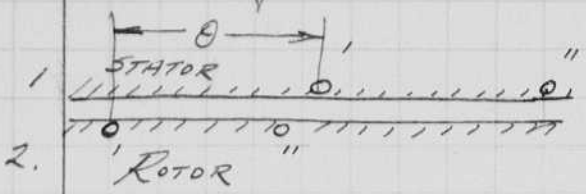 θ
' "
1 STATOR
2. ' "
ROTOR